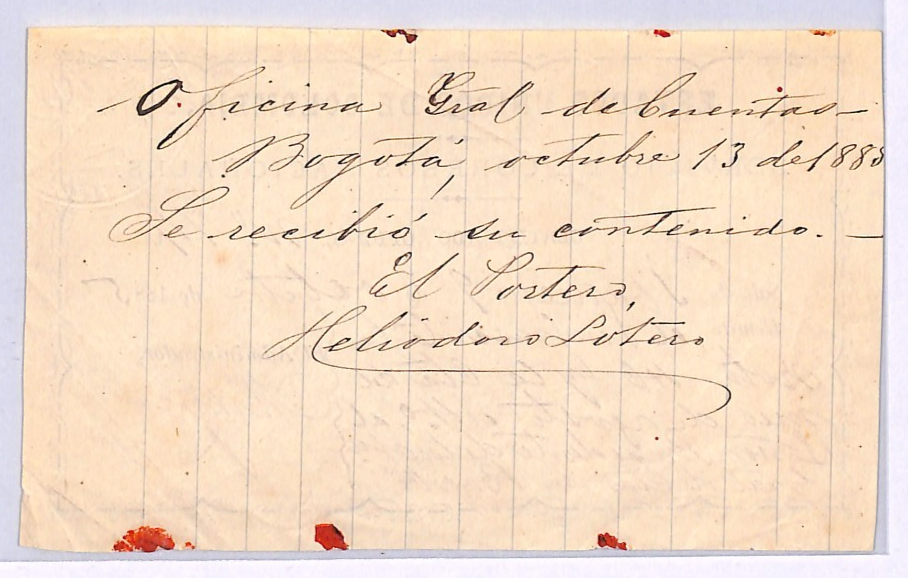 Oficina Gral de Cuentas—
Bogotá, octubre 13 de 1885
Se recibió su contenido.—
El Portero,
Heliodoro Lotero